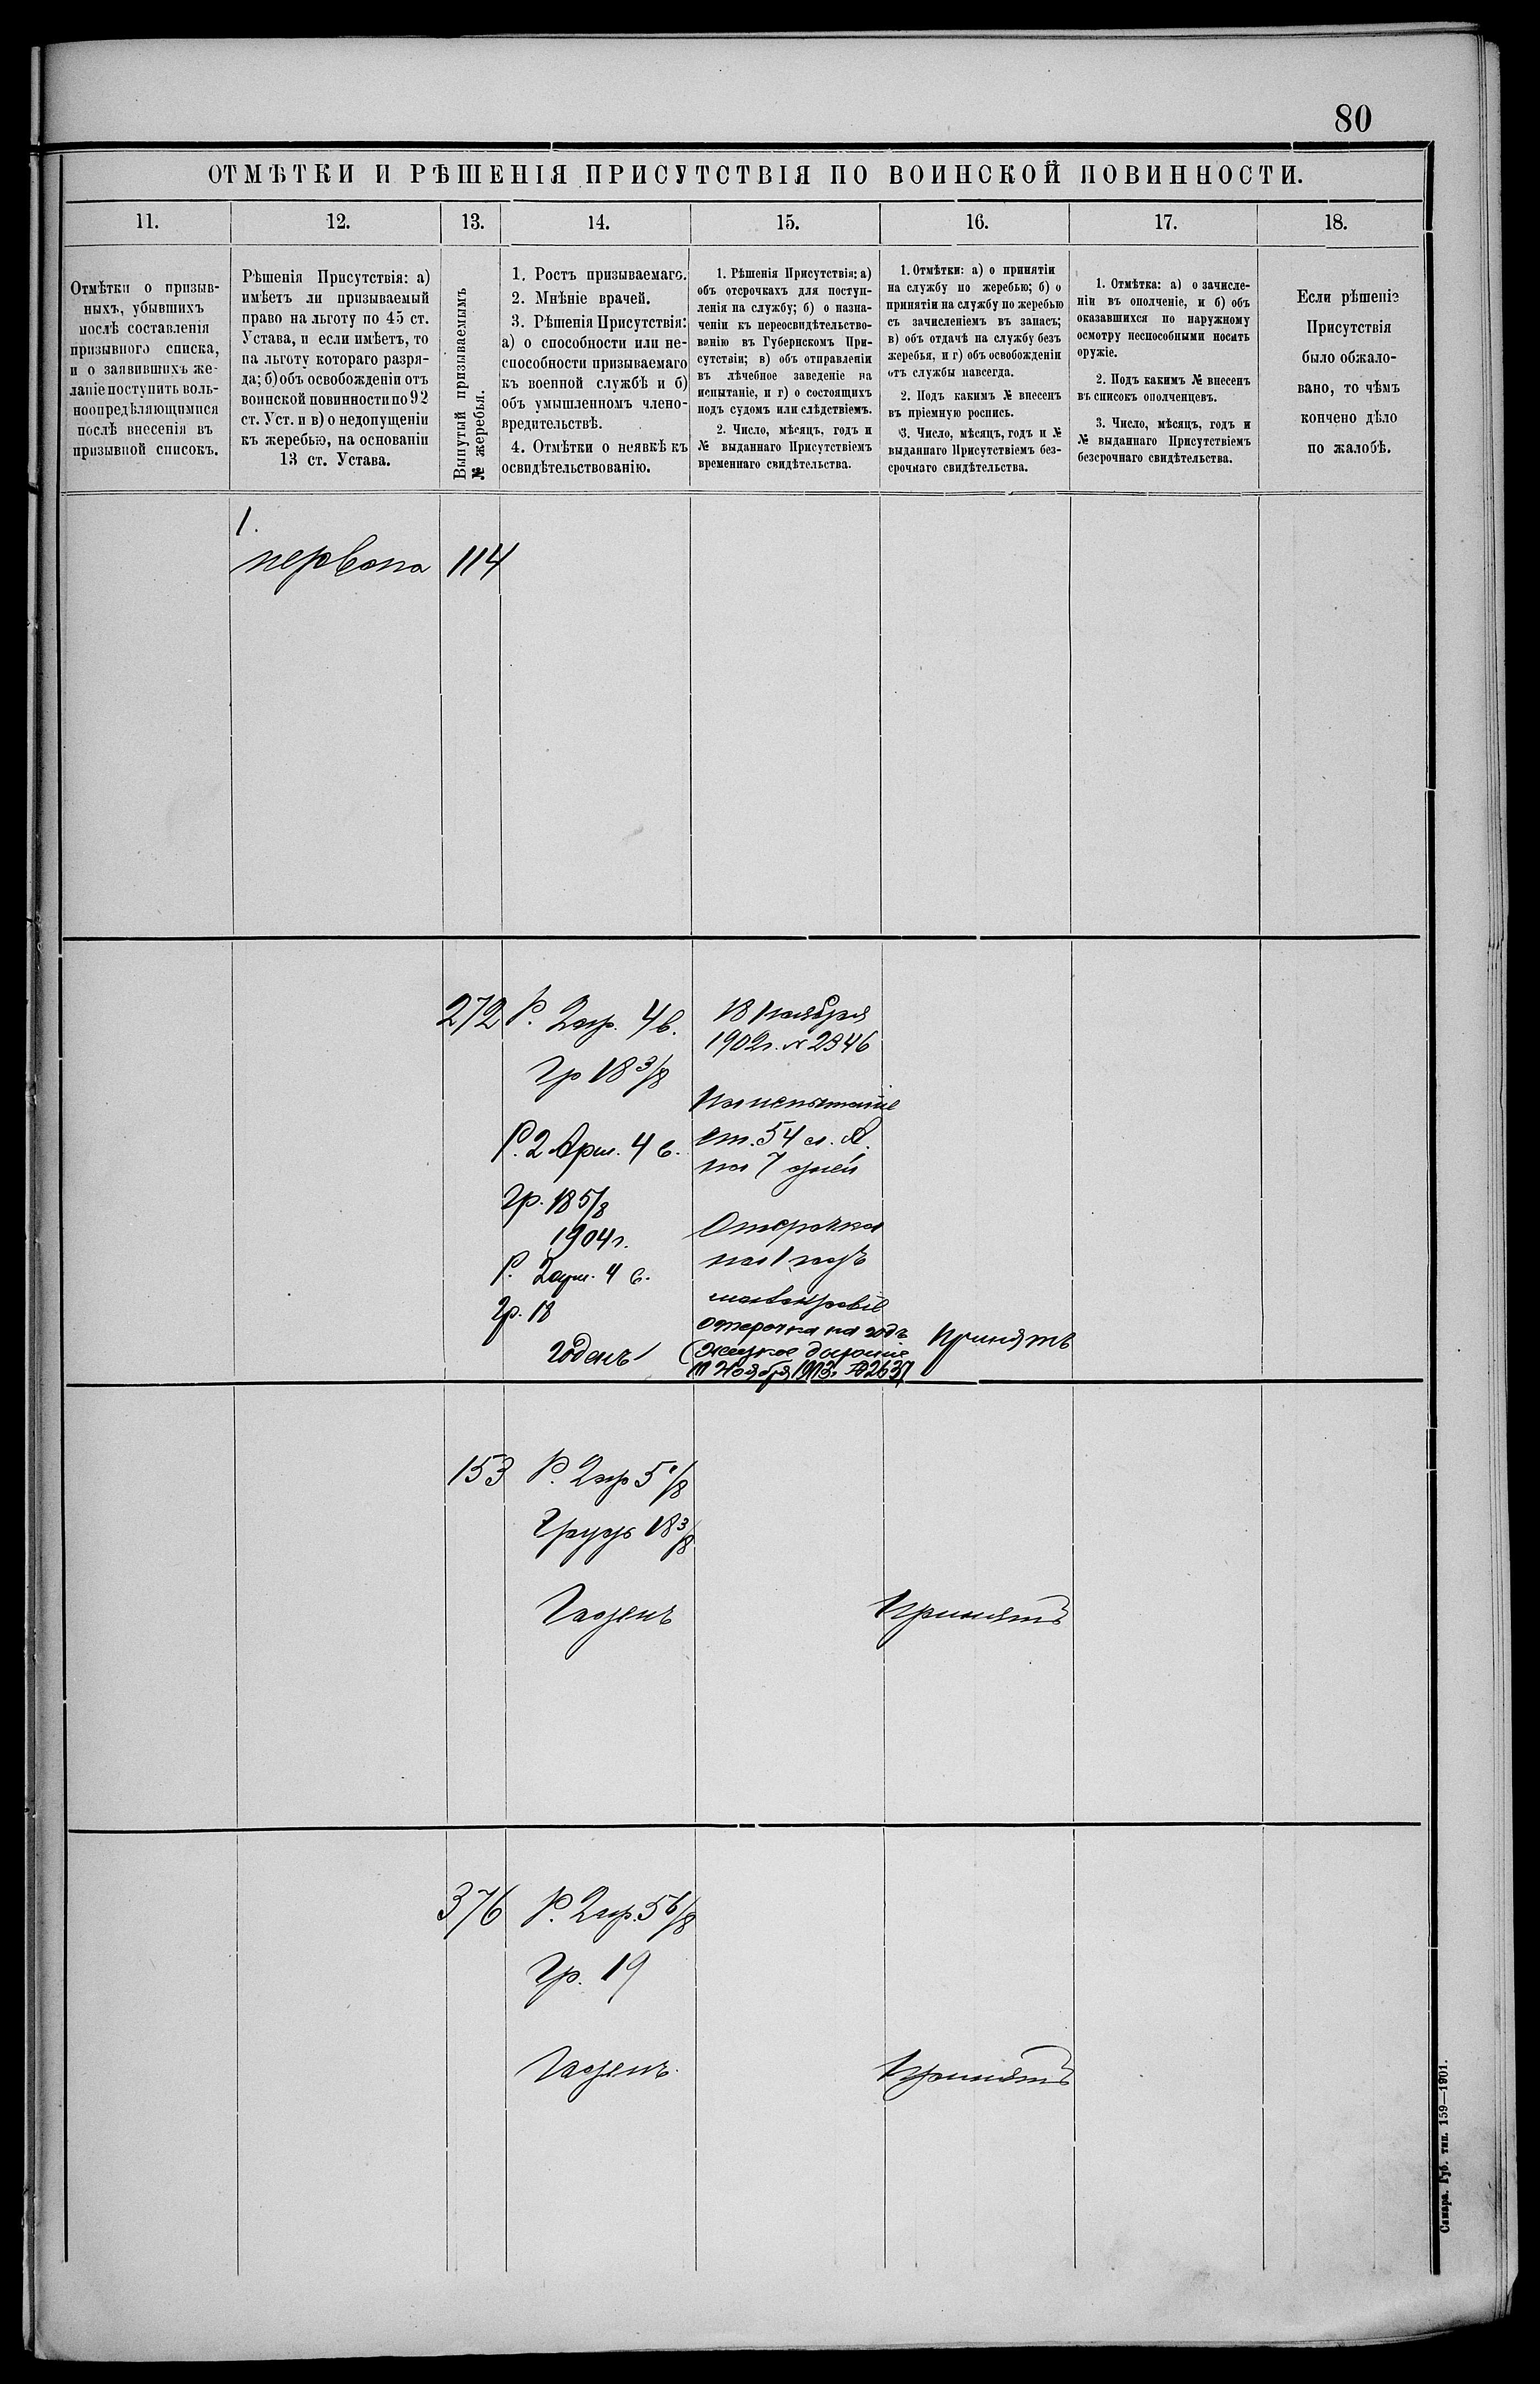 80
ОТМѢТКИ И РѢШЕНІЯ ПРИСУТСТВІЯ ПО ВОИНСКОЙ ПОВИННОСТИ.
11.
12.
13.
14.
15.
16.
17.
18.
Отмѣтки о призыв-
ныхъ, убывшихъ
послѣ составленія
призывного списка,
и о заявившихъ же-
ланіе поступить воль-
ноопредѣляющимися
послѣ внесенія въ
призывной списокъ.
Рѣшенія Присутствія: а)
имѣетъ ли призываемый
право на льготу по 45 ст.
Устава, и если имѣетъ, то
на льготу котораго разря-
да; б) объ освобожденіи отъ
воинской повинности по 92
ст. Уст. и в) о недопущеніи
къ жеребью, на основаніи
13 ст. Устава.
Вынутый призываемымъ
№ жеребья.
1. Ростъ призываемаго.
2. Мнѣніе врачей.
3. Рѣшенія Присутствія:
а) о способности или не-
способности призываемаго
къ военной службѣ и б)
объ умышленномъ члено-
вредительствѣ.
4. Отмѣтки о неявкѣ къ
освидѣтельствованію.
1. Рѣшенія Присутствія: а)
объ отсрочкахъ для поступ-
ленія на службу; б) о назна-
ченіи къ переосвидѣтельство-
ванію въ Губернскомъ При-
сутствіи; в) объ отправленіи
въ лѣчебное заведеніе на
испытаніе, и г) о состоящихъ
подъ судомъ или слѣдствіемъ.
2. Число, мѣсяцъ, годъ и
№ выданнаго Присутствіемъ
временнаго свидѣтельства.
1. Отмѣтки: а) о принятіи
на службу по жеребью; б) о
принятіи на службу по жеребью
съ зачисленіемъ въ запасъ;
в) объ отдачѣ на службу безъ
жеребья, и г) объ освобожденіи
отъ службы навсегда.
2. Подъ какимъ № внесенъ
въ пріемную роспись.
3. Число, мѣсяцъ, годъ и №
выданнаго Присутствіемъ без-
срочнаго свидѣтельства.
1. Отмѣтка: а) о зачисле-
ніи въ ополченіе, и б) объ
оказавшихся по наружному
осмотру неспособными носить
оружіе.
2. Подъ какимъ № внесенъ
въ списокъ ополченцевъ.
3. Число, мѣсяцъ, годъ и
№ выданнаго Присутствіемъ
безсрочнаго свидѣтельства.
Если рѣшеніе
Присутствія
было обжало-
вано, то чѣмъ
кончено дѣло
по жалобѣ.
1.
114
272
Р. 2 ар. 4 в.
Гр 18 3/8
Р. 2 Арш. 4 в.
Гр. 18 5/8
1904 г.
Р. 2 арш. 4 в.
Гр. 18
годенъ
18 Ноября
1902 г. № 2346
На испытаніе
ст. 54 л. А.
на 7 дней
Отсрочка
на 1 годъ
малокровіе
отсрочка на годъ
11 Ноября 1903 г. № 2637
Принятъ
153
Р. 2 ар 5 1/8
Грудь 18 3/8
Годенъ
Принятъ
376
Р. 2 ар. 5 6/8
Гр. 19
Годенъ.
Принятъ
Самара. Губ. тип. 159—1901.